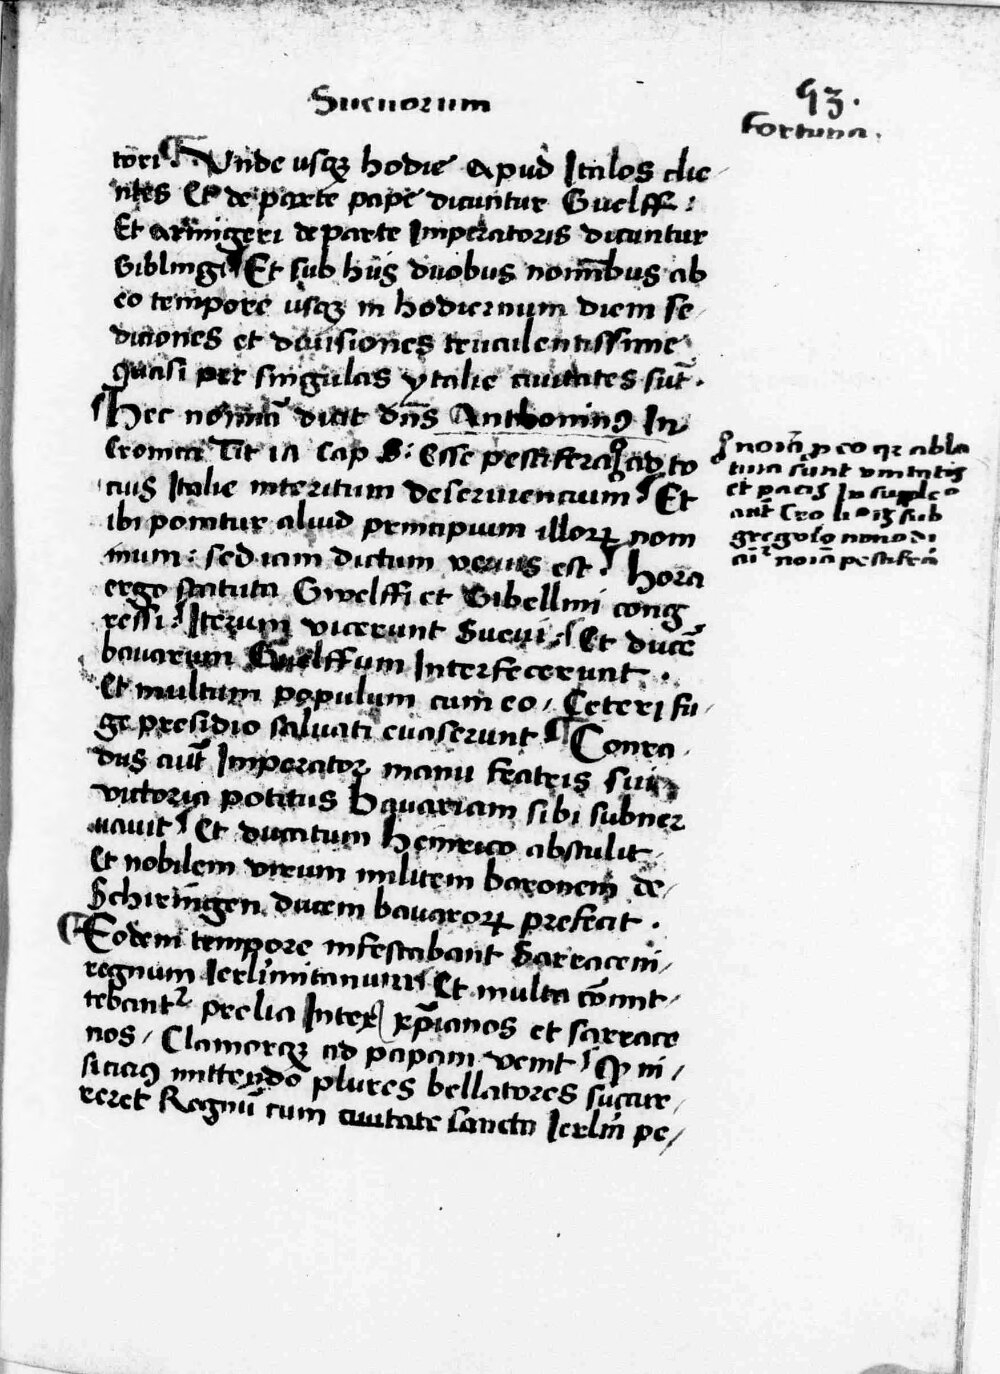 Sueuorum
93.
Fortuna.
tori Unde usqz hodie apud Italos clie
ntes Et de parte pape dicuntur Guelff:
Et armigeri de parte Imperatoris dicuntur
Giblingi Et sub hiis duobus nominibus ab
eo tempore usqz in hodiernum diem se
diciones et diuisiones truculentissime
quasi per singulas ytalie ciuitates sūt.
Hec nomīa dicit dn̄s Anthoninꝯ In
Cronica Tit Cap Esse pestifera ad to
cius Italie interitum deseruiencium Et
ibi ponitur aliud principium illorꝝ nom
inum: sed iam dictum verius est. Hora
ergo statuta Gwelffi et Gibellini cong
ressi: Iterum vicerunt Sueui: Et ducē
bauarum Guelffum Interfecerunt.
Et multum populum cum eo, Ceteri fu
ge presidio saluati euaserunt Conra
dus aūt Imperator manu fratris sui
victoria potitus Bauariam sibi subner
uauit Et ducatum Heinrico abstulit
Et nobilem virum militem baronem de
Schiringen ducem bauarorꝝ prefecit.
Eodem tempore infestabant Sarraceni
regnum Ierlimitanum Et multa cōmit
tebant2 prelia Inter xp̄ianos et sarrace
nos, Clamorqz ad papam venit ꝙ ni
si cicius mittendo plures bellatores succur
reret Regnū cum ciuitate sancta Ierlm̄ pe
noīa eo qꝛ abla
tiua sunt vnitatis
et pacis In supple
aūt Cro sub
gregorio nono di
noīa pestifera